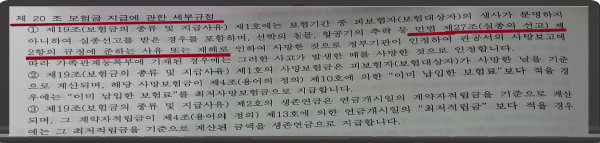 제 20 조 보험금 지급에 관한 세부규정
① 제19조(보험금의 종류 및 지급사유) 제1호에는 보험기간 중 피보험자(보험대상자)의 생사가 분명하지
아니하여 실종선고를 받은 경우를 포함하며, 선박의 침몰, 항공기의 추락 등 민법 제27조(실종의 선고) 제
2항의 규정에 준하는 사유 또는 재해로 인하여 사망한 것으로 정부기관이 인정하여 관공서의 사망보고에
따라 가족관계등록부에 기재된 경우에는 그러한 사고가 발생한 때를 사망한 것으로 인정합니다.
② 제19조(보험금의 종류 및 지급사유) 제1호의 사망보험금은 피보험자(보험대상자)가 사망한 날을 기준
으로 계산되며, 해당 사망보험금이 제4조(용어의 정의) 제10호에 의한 "이미 납입한 보험료"보다 적을 경
우에는 "이미 납입한 보험료"를 최저사망보험금으로 지급합니다.
③ 제19조(보험금의 종류 및 지급사유) 제2호의 생존연금은 연금개시일의 계약자적립금을 기준으로 계산
되며, 그 계약자적립금이 제4조(용어의 정의) 제13호에 의한 연금개시일의 "최저적립금" 보다 적을 경우
에는 그 최저적립금을 기준으로 계산된 금액을 생존연금으로 지급합니다.